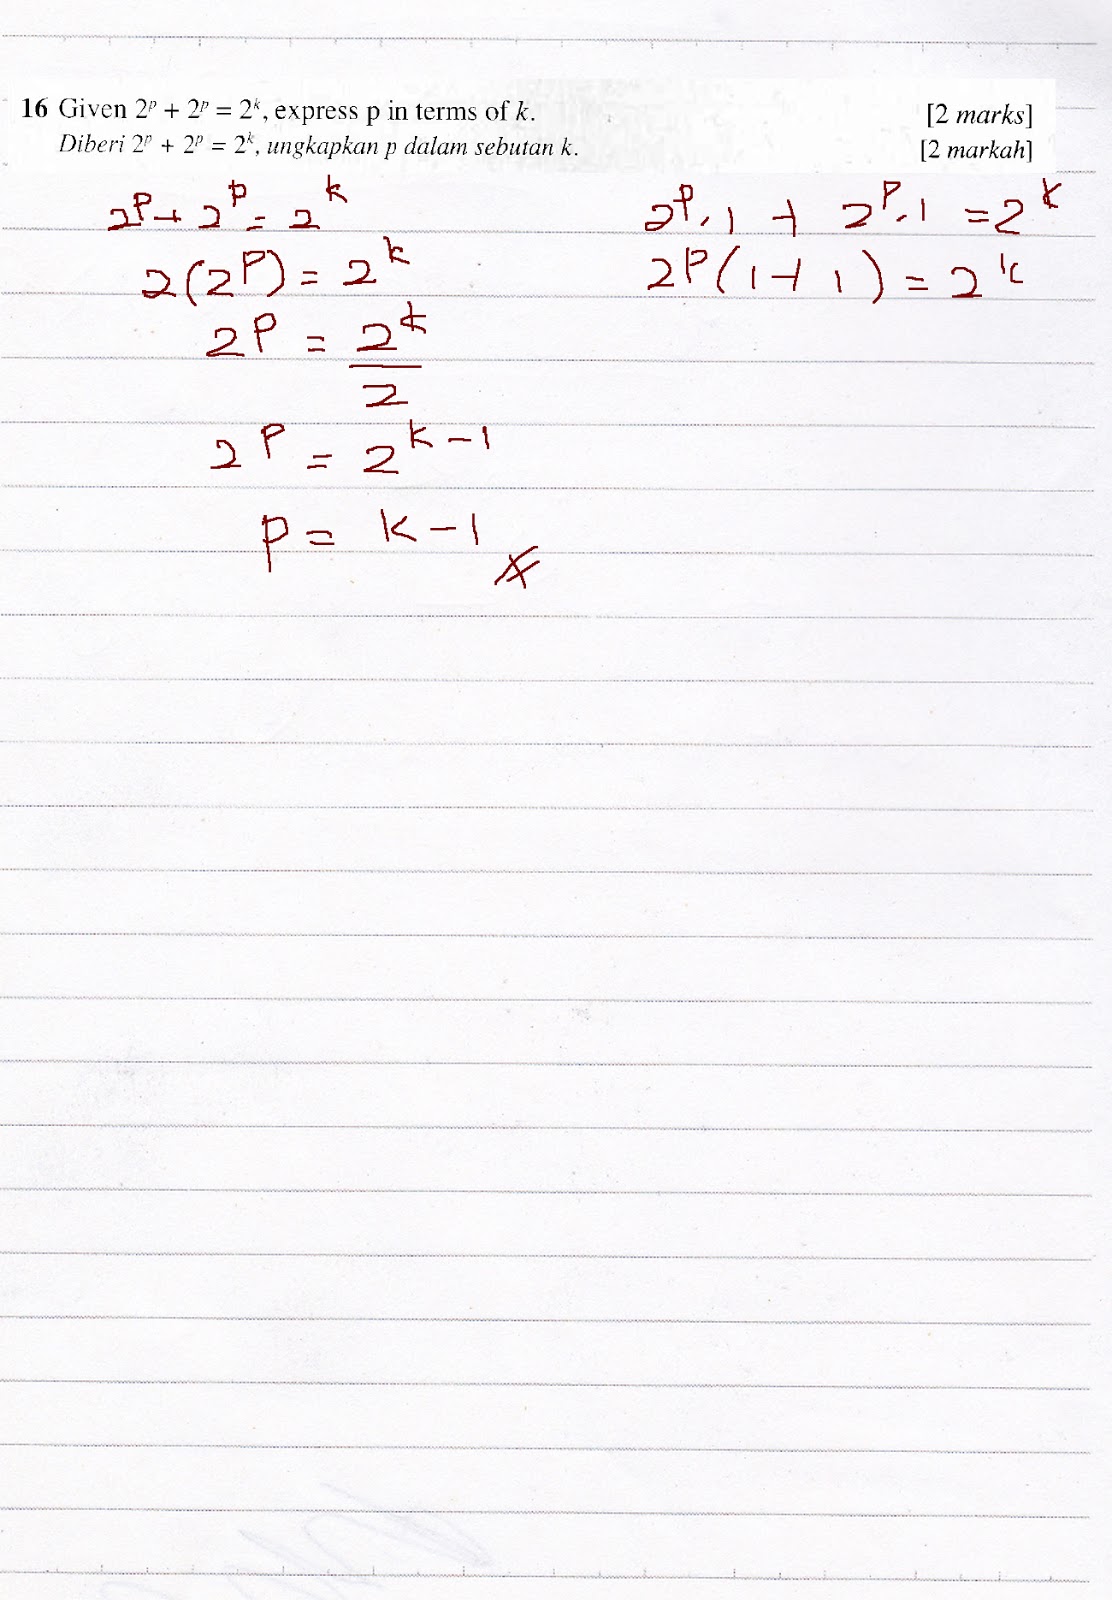 16 Given 2ᵖ + 2ᵖ = 2ᵏ, express p in terms of k. [2 marks]
Diberi 2ᵖ + 2ᵖ = 2ᵏ, ungkapkan p dalam sebutan k. [2 markah]
2ᵖ + 2ᵖ = 2ᵏ
2(2ᵖ) = 2ᵏ
2ᵖ = 2ᵏ
2
2ᵖ = 2ᵏ⁻¹
p = k - 1
2ᵖ.1 + 2ᵖ.1 = 2ᵏ
2ᵖ(1+1) = 2ᵏ